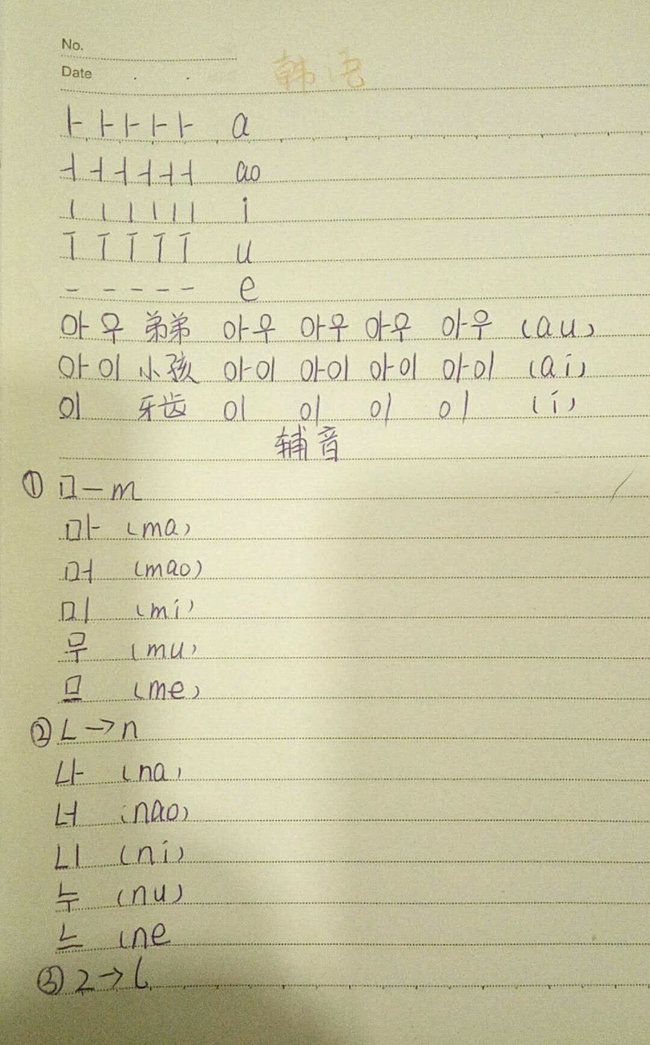 No.
Date . . 韩语
ㅏ ㅏ ㅏ ㅏ ㅏ a
ㅓ ㅓ ㅓ ㅓ ㅓ ㅓ ao
ㅣ ㅣ ㅣ ㅣ ㅣ ㅣ i
ㅜ ㅜ ㅜ ㅜ ㅜ u
ㅡ ㅡ ㅡ ㅡ ㅡ e
아우 弟弟 아우 아우 아우 아우 (au)
아이 小孩 아이 아이 아이 아이 (ai)
이 牙齿 이 이 이 이 (i)
辅音
① ㅁ—m
마 (ma)
머 (mao)
미 (mi)
무 (mu)
므 (me)
② ㄴ→n
나 (na)
너 (nao)
니 (ni)
누 (nu)
느 (ne
③ ㄹ→l